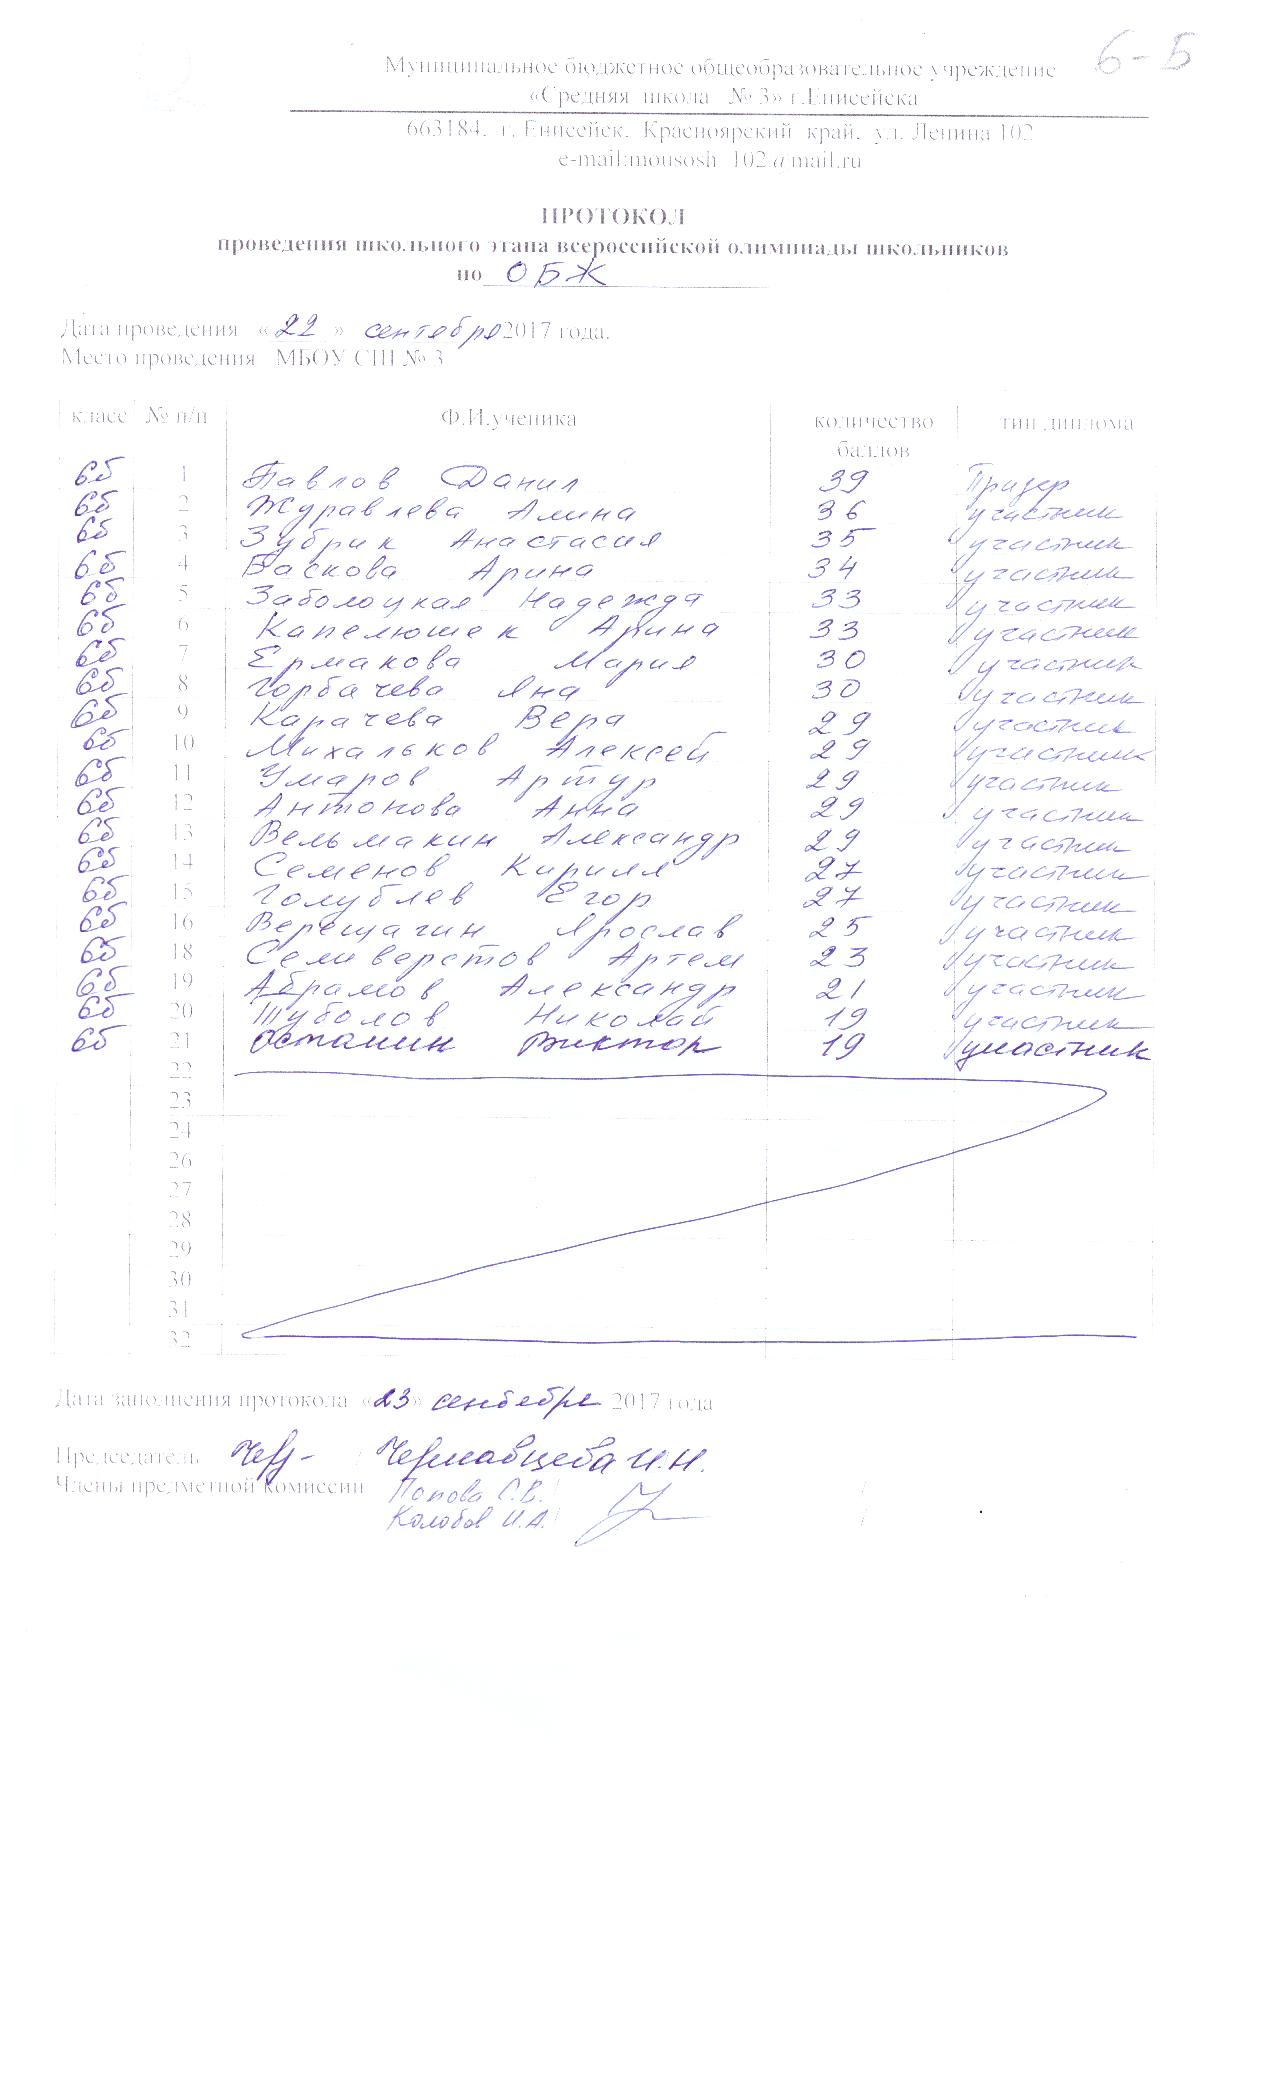 6-Б
Муниципальное бюджетное общеобразовательное учреждение
«Средняя школа № 3» г.Енисейска
663184, г. Енисейск, Красноярский край, ул. Ленина 102
e-mail:mousosh_102@mail.ru
ПРОТОКОЛ
проведения школьного этапа всероссийской олимпиады школьников
по ОБЖ
Дата проведения «22» сентября 2017 года.
Место проведения МБОУ СШ № 3
класс № п/п Ф.И.ученика количество баллов тип диплома
6б 1 Павлов Данил 39 Призер
6б 2 Журавлева Алина 36 участник
6б 3 Зубрик Анастасия 35 участник
6б 4 Баскова Арина 34 участник
6б 5 Заболоцкая Надежда 33 участник
6б 6 Капелюшек Арина 33 участник
6б 7 Ермакова Мария 30 участник
6б 8 Горбачева Яна 30 участник
6б 9 Карачева Вера 29 участник
6б 10 Михальков Алексей 29 участник
6б 11 Умаров Артур 29 участник
6б 12 Антонова Анна 29 участник
6б 13 Вельмакин Александр 29 участник
6б 14 Семенов Кирилл 27 участник
6б 15 Голублев Егор 27 участник
6б 16 Верещагин Ярослав 25 участник
6б 18 Селиверстов Артем 23 участник
6б 19 Абрамов Александр 21 участник
6б 20 Шуболов Николай 19 участник
6б 21 Останин Виктор 19 участник
22
23
24
26
27
28
29
30
31
32
Дата заполнения протокола «23» сентября 2017 года
Председатель Чернавцева И.Н.
Члены предметной комиссии Попова С.В.
Колобов И.А.